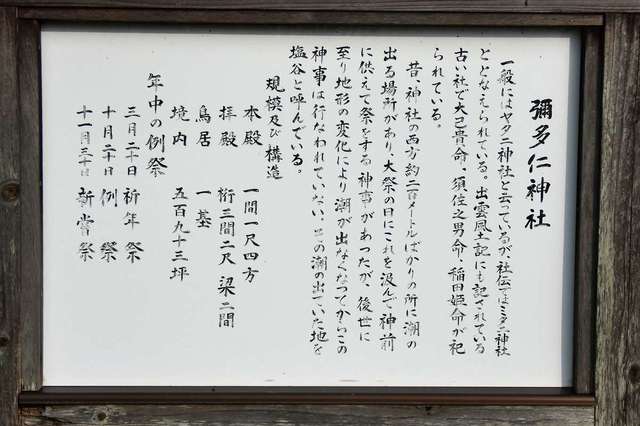 彌多仁神社
一般にはヤタニ神社と云っているが、社伝ではミタニ神社
ととなえられている。出雲風土記にも記されている
古い社で大己貴命、須佐之男命、稲田姫命が祀
られている。
昔、神社の西方約二百メートルばかりの所に潮の
出る場所があり、大祭の日にこれを汲んで神前
に供えて祭をする神事があったが、後世に
至り地形の変化により潮が出なくなってからこの
神事は行なわれていない、この潮の出ていた地を
塩谷と呼んでいる。
規模及び構造
本殿 一間一尺四方
拝殿 桁三間二尺 梁二間
鳥居 一基
境内 五百九十三坪
年中の例祭
三月二十日 祈年祭
十月二十日 例祭
十一月三十日 新嘗祭